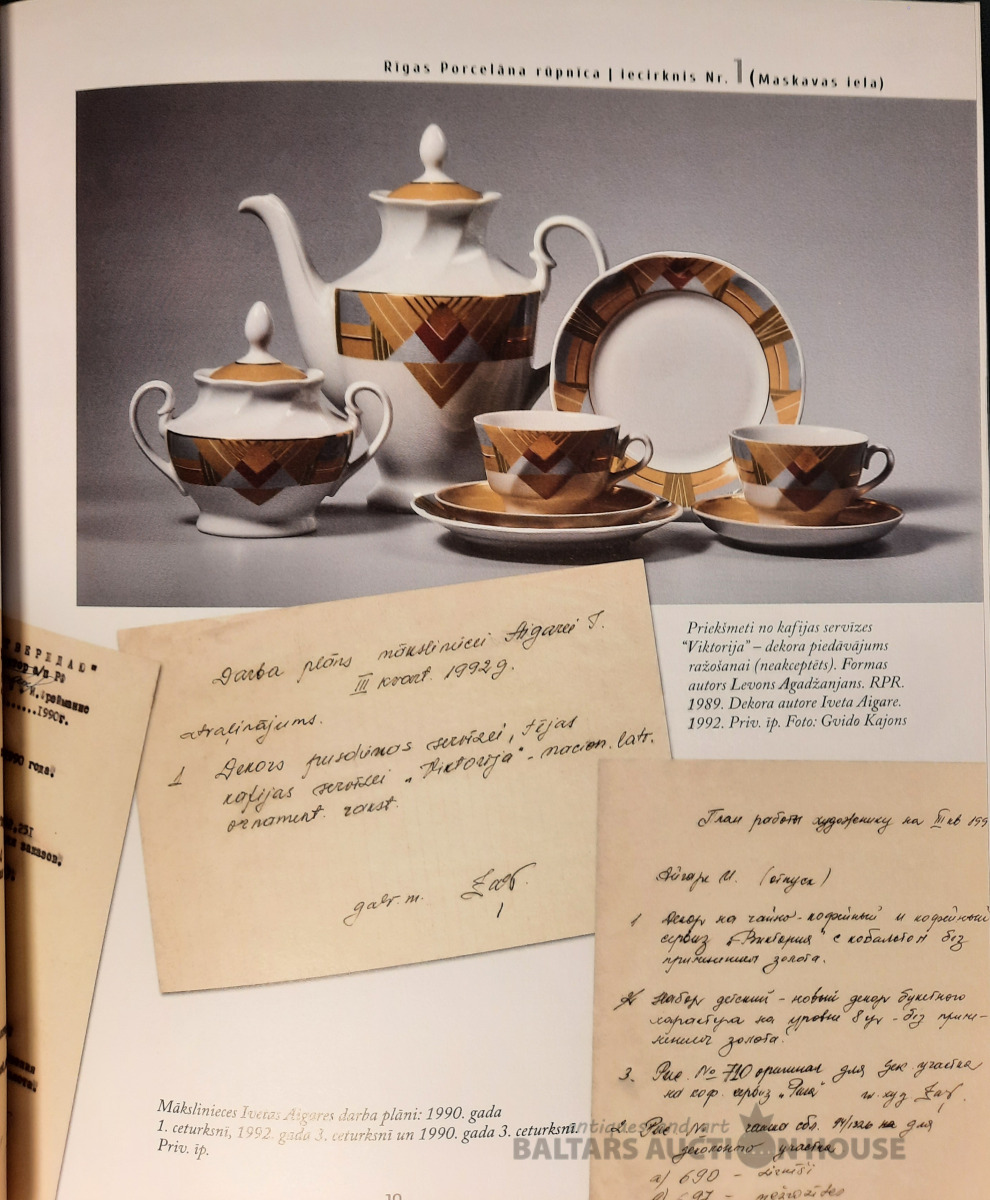 Rīgas Porcelāna rūpnīca | Iecirknis Nr. 1 (Maskavas iela)
Priekšmeti no kafijas servīzes
"Viktorija" – dekora piedāvājums
ražošanai (neakceptēts). Formas
autors Levons Agadžanjans. RPR.
1989. Dekora autore Iveta Aigare.
1992. Priv. īp. Foto: Gvido Kajons
Darba plāns māksliniecei Aigarei I.
III kvart. 1992g.
1 Dekors pusdienas servīzei, tējas
kafijas servīzei "Viktorija" - nacion. latv.
ornament. rakst.
galv. m.
...1990г.
1990 года.
заказов.
План работы художнику на III кв 199
Айгаре И. (отпуск)
1 Декор на чайно-кофейный и кофейный
сервиз "Виктория" с кобальтом без
применения золота.
2 Набор детский - новый декор букетного
характера на уровне 8 - без приме-
нения золота.
3. Рис. № 710 оригинал для дек. участка
на коф. сервиз "Рига"
2. Рис. № на для
участка
а) 690 -
697 -
Mākslinieces Ivetas Aigares darba plāni: 1990. gada
1. ceturksnī, 1992. gada 3. ceturksnī un 1990. gada 3. ceturksnī.
Priv. īp.
antiques and art
BALTARS AUCTION HOUSE